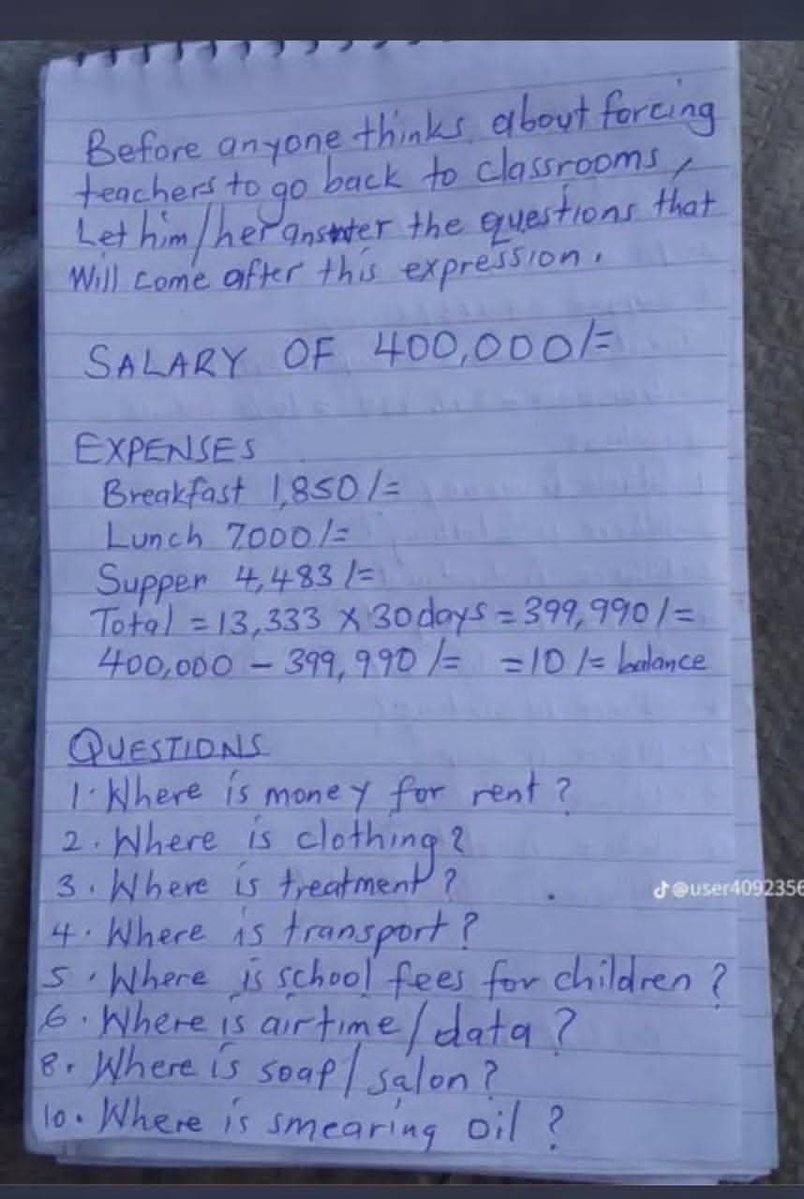 Before anyone thinks about forcing
teachers to go back to classrooms,
Let him/her answter the questions that
Will come after this expression.
SALARY OF 400,000/=
EXPENSES
Breakfast 1,850/=
Lunch 7000/=
Supper 4,483/=
Total = 13,333 X 30 days = 399,990/=
400,000 - 399,990/= =10/= balance
QUESTIONS
1. Where is money for rent?
2. Where is clothing?
3. Where is treatment?
4. Where is transport?
5. Where is school fees for children?
6. Where is airtime/data?
8. Where is soap/salon?
10. Where is smearing oil?
@user4092356